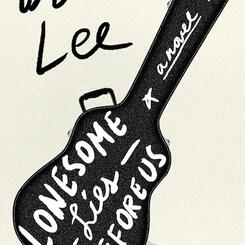 Lee
a novel
LONESOME
Lies
BEFORE US